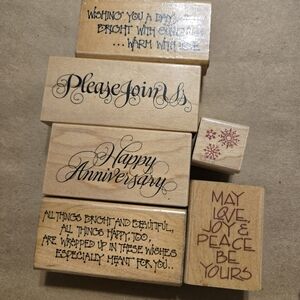 WISHING YOU A DAY
BRIGHT WITH SUNSHINE
...WARM WITH LOVE
Please Join Us
Happy
Anniversary
ALL THINGS BRIGHT AND BEAUTIFUL,
ALL THINGS HAPPY, TOO,
ARE WRAPPED UP IN THESE WISHES
ESPECIALLY MEANT FOR YOU..
MAY
LOVE,
JOY &
PEACE
BE
YOURS